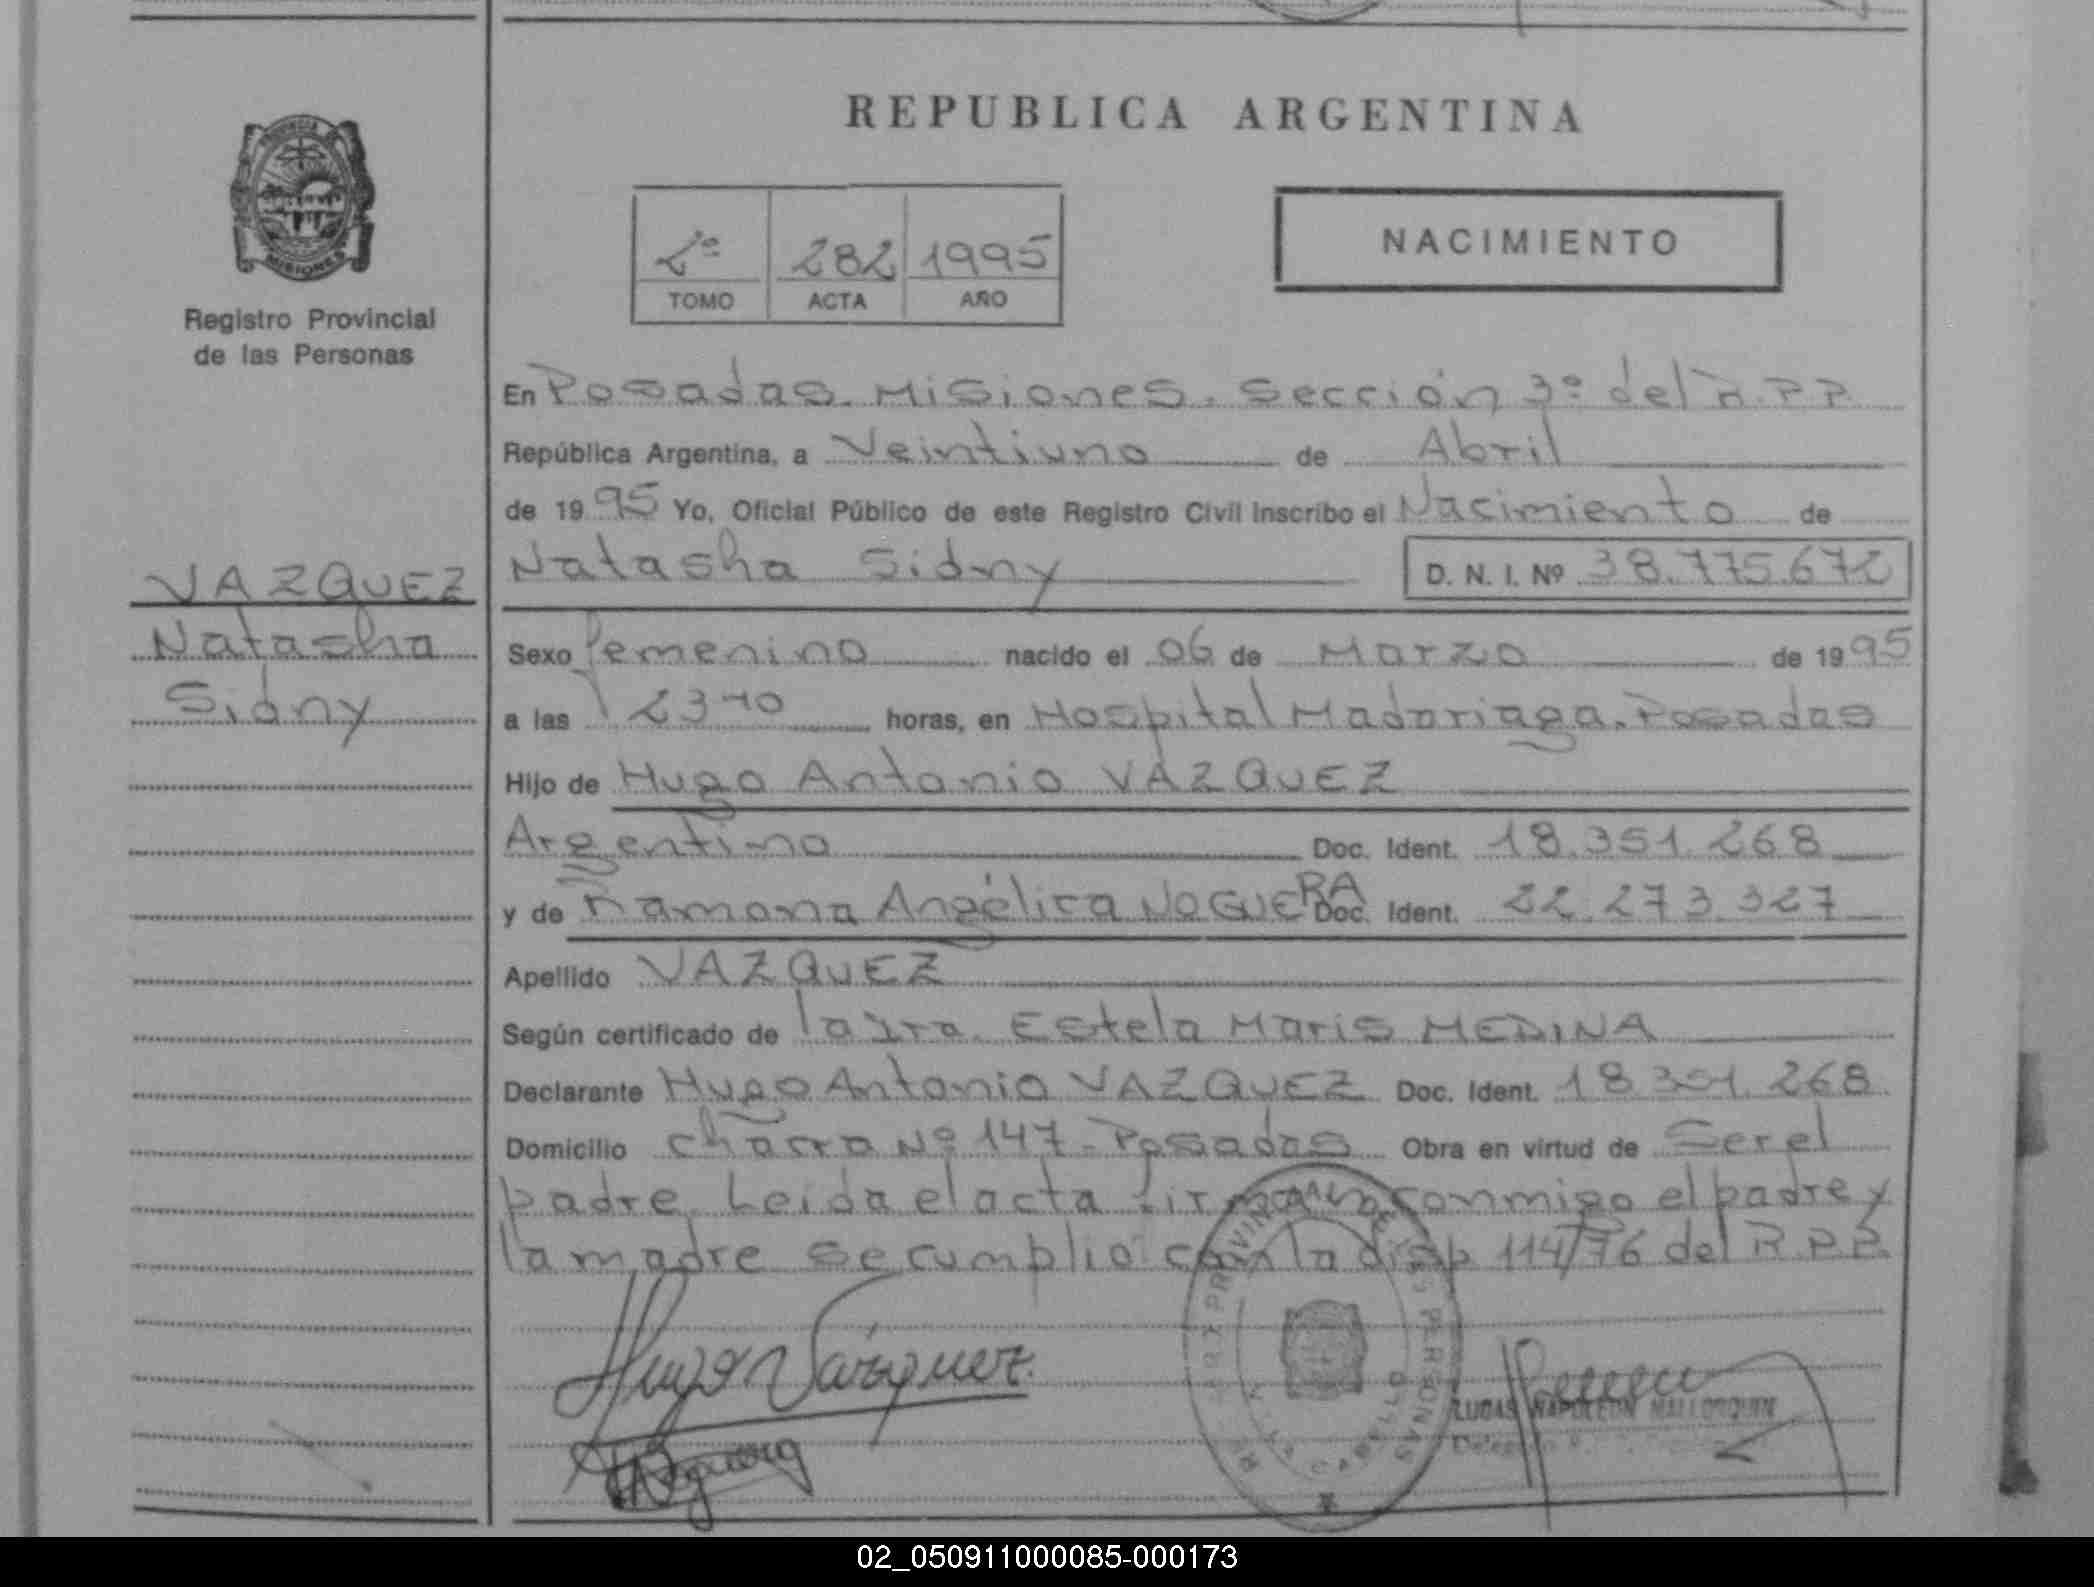 REPUBLICA ARGENTINA
PROVINCIA DE
MISIONES
Registro Provincial
de las Personas
2º 282 1995
TOMO ACTA AÑO
NACIMIENTO
VAZQUEZ
Natasha
Sidny
En Posadas. Misiones. Sección 3º del R.P.P.
República Argentina, a Veintiuno de Abril
de 1995 Yo, Oficial Público de este Registro Civil inscribo el Nacimiento de
Natasha Sidny D. N. I. Nº 38.775.672
Sexo femenino nacido el 06 de Marzo de 1995
a las 23 40 horas, en Hospital Madariaga. Posadas
Hijo de Hugo Antonio VAZQUEZ
Argentino Doc. Ident. 18.351.268
y de Ramona Angélica NOGUERA Doc. Ident. 22.273.327
Apellido VAZQUEZ
Según certificado de la Estela Maris MEDINA
Declarante Hugo Antonio VAZQUEZ Doc. Ident. 18.351.268
Domicilio chacra Nº 147 - Posadas Obra en virtud de Ser el
padre. Leida el acta firman conmigo el padre y
la madre se cumplió con la disp 114/76 del R.P.P.
Hugo Vázquez
LUCAS NAPOLEON MALLORQUIN
02_050911000085-000173